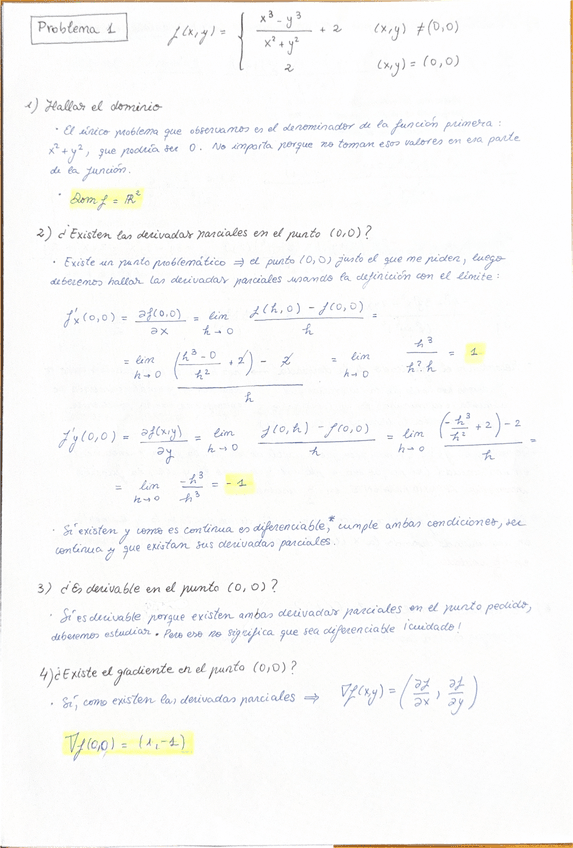 Problema 1
f(x,y) = { (x³ - y³)/(x² + y²) + 2 (x,y) ≠ (0,0)
2 (x,y) = (0,0)
1) Hallar el dominio
· El único problema que observamos es el denominador de la función primera:
x² + y², que podría ser 0. No importa porque no toman esos valores en esa parte
de la función.
· Dom f = ℝ²
2) ¿Existen las derivadas parciales en el punto (0,0)?
· Existe un punto problemático ⇒ el punto (0,0) justo el que me piden, luego
deberemos hallar las derivadas parciales usando la definición con el límite:
f'x(0,0) = ∂f(0,0)/∂x = lim h→0 (f(h,0) - f(0,0))/h =
= lim h→0 (((h³-0)/h² + 2) - 2)/h = lim h→0 h³/(h²·h) = 1
f'y(0,0) = ∂f(x,y)/∂y = lim h→0 (f(0,h) - f(0,0))/h = lim h→0 ((-h³/h² + 2) - 2)/h =
= lim h→0 -h³/h³ = -1
· Sí existen y como es continua es diferenciable,* cumple ambas condiciones, ser
continua y que existan sus derivadas parciales.
3) ¿Es derivable en el punto (0,0)?
· Sí es derivable porque existen ambas derivadas parciales en el punto pedido,
deberemos estudiar. Pero eso no significa que sea diferenciable ¡cuidado!
4) ¿Existe el gradiente en el punto (0,0)?
· Sí, como existen las derivadas parciales ⇒ ∇f(x,y) = (∂f/∂x, ∂f/∂y)
∇f(0,0) = (1,-1)